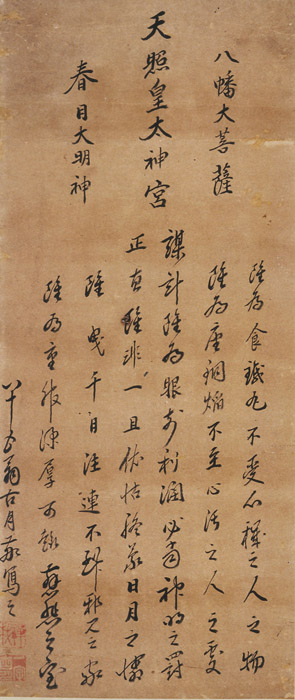 八幡大菩薩
天照皇太神宮
春日大明神
雖為食鐵丸不受心穢之人之物
雖為座銅焔不至心汚之人之處
謀計雖為眼前利潤必當神明之罰
正直雖非一旦依怙終蒙日月之憐
雖曳千日注連不到邪見之家
雖為重服深厚可趣慈悲之室
八十五翁古月敬寫之